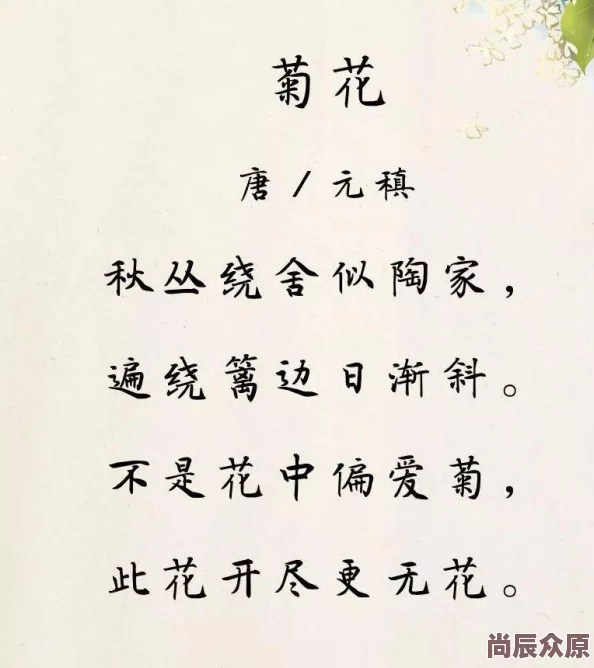 菊花
唐/元稹
秋丛绕舍似陶家，
遍绕篱边日渐斜。
不是花中偏爱菊，
此花开尽更无花。
尚辰众原